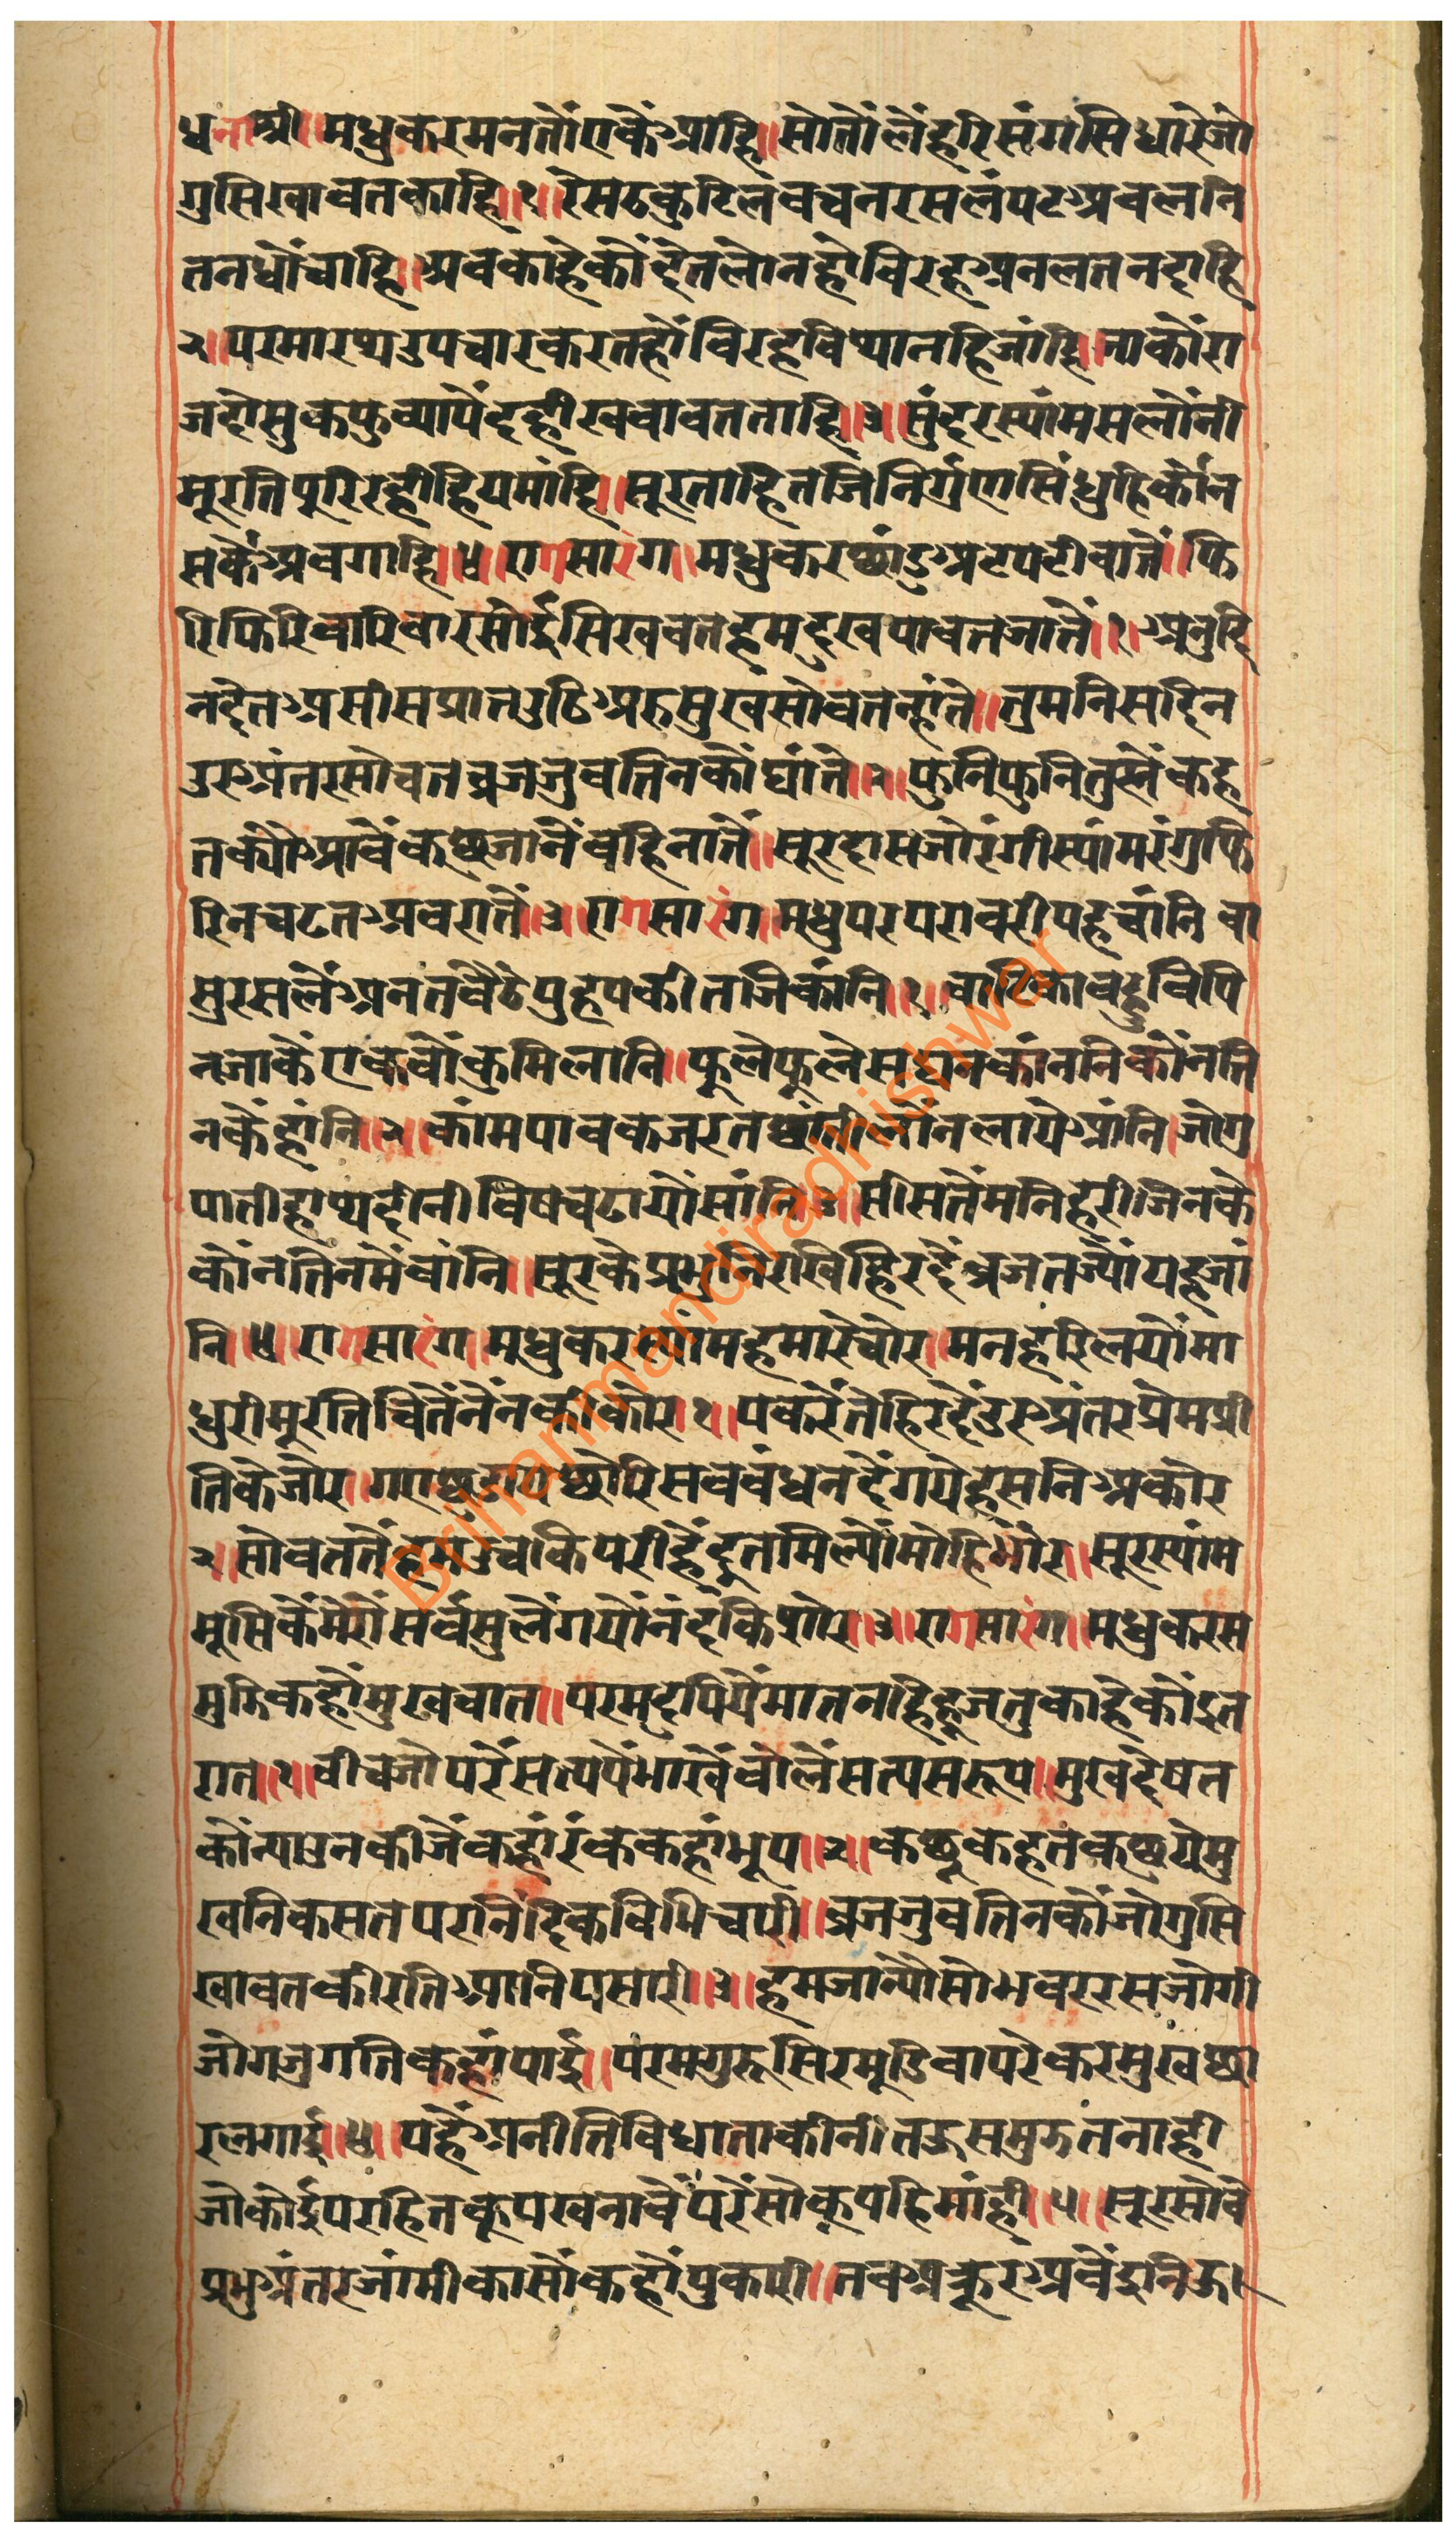 धनाश्री॥मधुकरमनतौएकैआहि॥सोतौलैंहरिसंगसिधारेजो
गुसिखावतकाहि॥१॥रेसठकुटिलवचनरसलंपटअवलनि
तनधौंचाहि॥अवकाहेकौंदेतलोनहौविरहअनलतनदाहि
२॥परमारथउपचारकरतहौंविरहविथानहिजांहि॥जाकौंरा
जहोसुकफुव्यापैंदहीखवावतताहि॥३॥सुंदरस्यांमसलौंनी
मूरतिपूरिरहीहियमांहि॥सूरताहितजिनिर्गुणसिंधुहिकौंन
सकैंअवगाहि॥४॥रागसारंग॥मधुकरछांडअटपटीवातें॥फि
रिफिरिवारिवारसोईसिखवतहमदुखपावतजातें॥१॥अनुदि
नदेतअसीसप्रातउठिअरुसुखसोवतन्हांतें॥तुमनिसदिन
उरअंतरसोचतव्रजजुवतिनकौंघांतें॥२॥फुनिफुनितुम्हैंकह
तक्योंआवैंकछुजानैंवहिनातें॥सूरदासजोरंगीस्यांमरंगुफि
रिनचढतअवरातें॥३॥रागसारंग॥मधुपरपरावरीपहचांनि वा
सुरसलैंअनतवैठेपुहपकीतजिकांनि॥१॥वाटिकावहुविपि
नजाकैंएकवौंकुमिलानि॥फूलेफूलेसघनकांननिकौंनति
नकैंहांनि॥२॥कांमपावकजरतछातीलौंनलायेआंनि॥जोगु
पातीहाथदीनीविषचढायौसांनि॥३॥सीसतैंमनिहरीजिनकै
कौंनतिनमैंवांनि॥सूरकेप्रभुनिरखिहिरदैंव्रजतज्यौंयहजां
नि॥४॥रागसारंग॥मधुकरस्यांमहमारेचोर॥मनहरिलयौंमा
धुरीमूरतिचितैंनैंनकीकोर॥१॥पकरेंतेहिरदैंउरअंतरप्रेमप्री
तिकेजोर॥गएछडायछोरिसववंधनदेंगयेहसनिअकोर
२॥सोवततैंहमउचकिपरीहैंदूतमिल्यौंमोहिभोर॥सूरस्यांम
मूसिकैंमेरौंसर्वसुलैंगयौंनंदकिशोर॥३॥रागसारंग॥मधुकरस
मुझिकहौंमुखवात॥परमदपियैंमातनहिहूजतुकाहेकौंइत
रात॥१॥वीचजोपरैंसत्यपैंभाखैंवोलैंसत्यसरूप॥मुखदेषत
कौंन्याउनकीजैंकहांरंककहांभूप॥२॥कछूकहतकछुयेमु
खनिकसतेपरनिंदिकविभिचारी॥व्रजजुवतिनकौंजोगुसि
खावतकीरतिआनिपसारी॥३॥हमजान्यौसोभवररसजोगी
जोगजुगतिकहांपाई॥परमगुरूसिरमूडिवापरेकरमुखछा
रलगाई॥४॥यहैंअनीतिविधाताकीनीतऊसमुझतनाही
जोकोईपरहितकूपखनावैंपरैंसोकूपहिमांही॥५॥सूरसोवे
प्रभुअंतरजांमीकासौंकहौंपुकारी॥तवअक्रूरअवेंइनिऊ